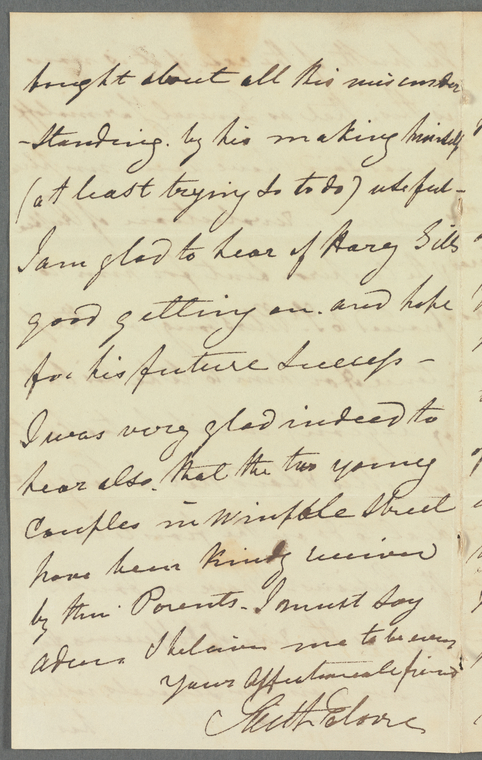 bought about all this misunder
-standing. by his making himself
(at least trying so to do) useful-
I am glad to hear of Harry Gills
good getting on. and hope
for his future success -
I was very glad indeed to
hear also. that the two young
Couples in Wimpole Street
have been kindly received
by their Parents. I must say
adieu & believe me to be ever
your affectionate friend